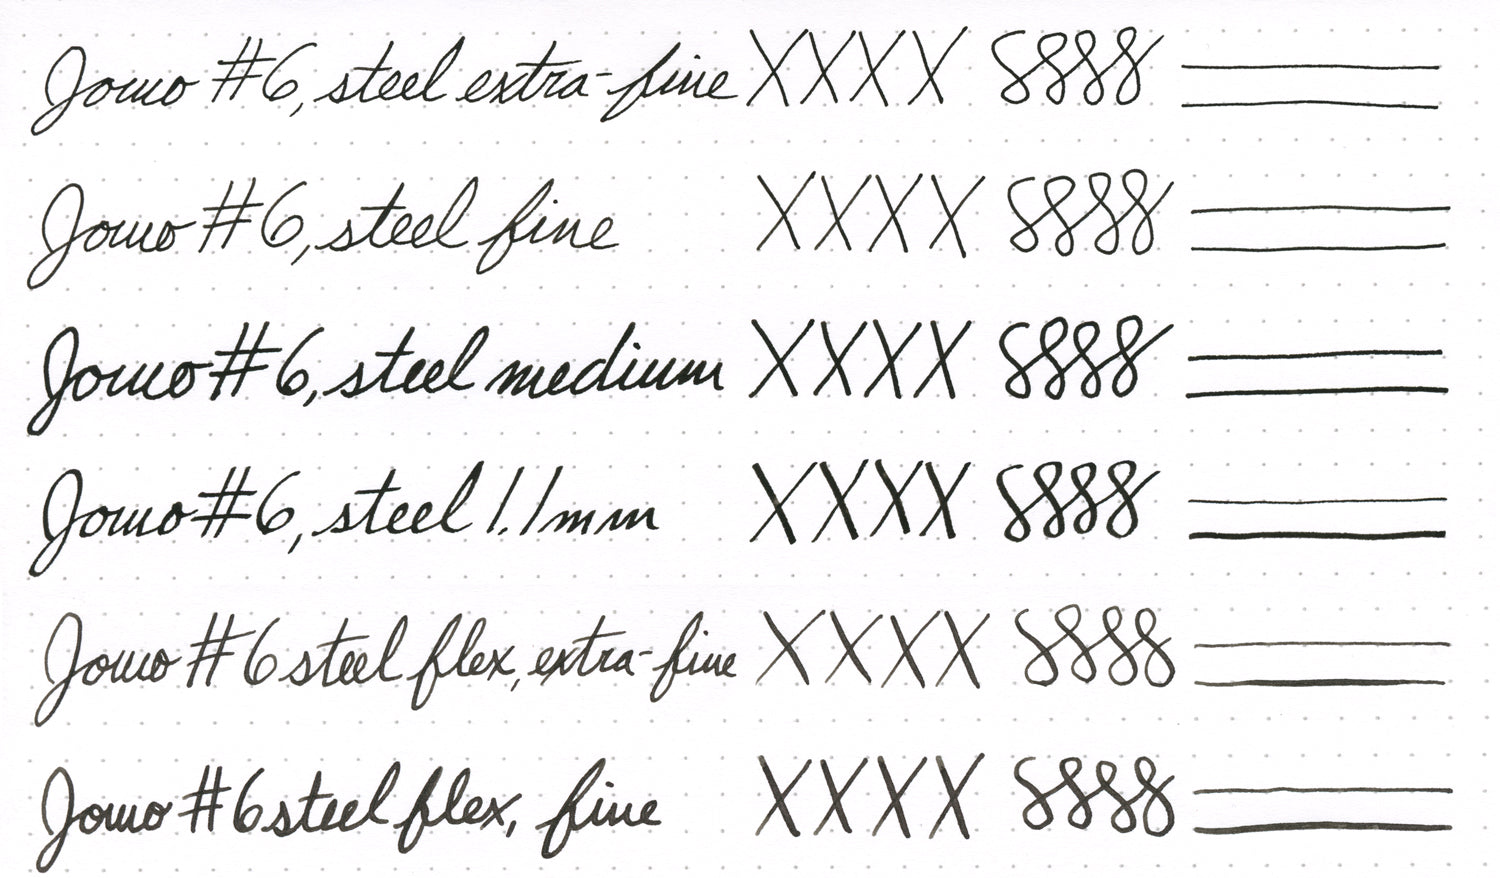 Jowo #6, steel extra-fine XXXX 8888
Jowo #6, steel fine XXXX 8888
Jowo #6, steel medium XXXX 8888
Jowo #6, steel 1.1mm XXXX 8888
Jowo #6 steel flex, extra-fine XXXX 8888
Jowo #6 steel flex, fine XXXX 8888